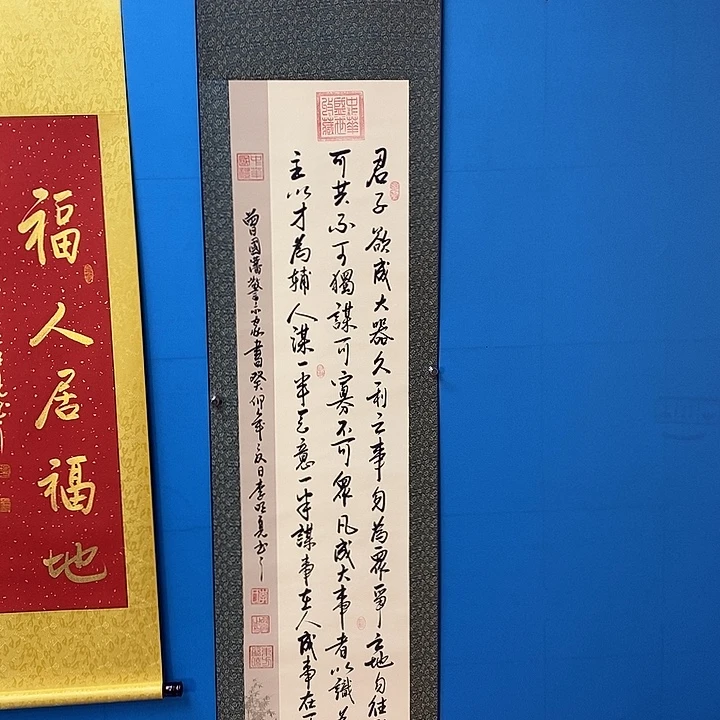 君子欲成大器久利之事勿為眾爭之地勿往
可共不可獨謀可寡不可眾凡成大事者以識為
主以才為輔人謀一半天意一半謀事在人成事在天
曾國藩警示家書癸卯年夏日李明亮书
福人居福地